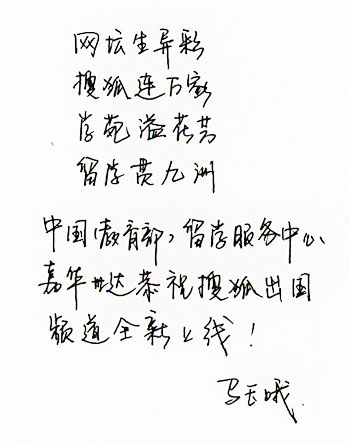 网坛生异彩
搜狐连万家
学苑溢花芳
留学贯九洲
中国(教育部)留学服务中心
嘉华世达恭祝搜狐出国
频道全新上线!
马玉娥